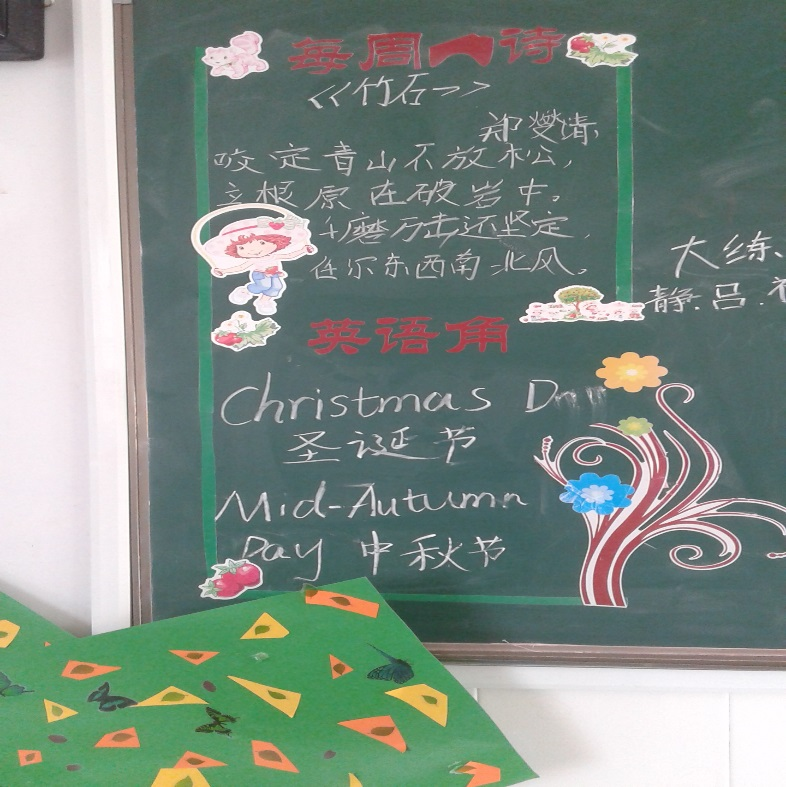 每周一诗
<<竹石>>
郑燮清
咬定青山不放松,
立根原在破岩中。
千磨万击还坚定,
任尔东西南北风。
大练、
静.吕.
英语角
Christmas D
圣诞节
Mid-Autumn
Day 中秋节